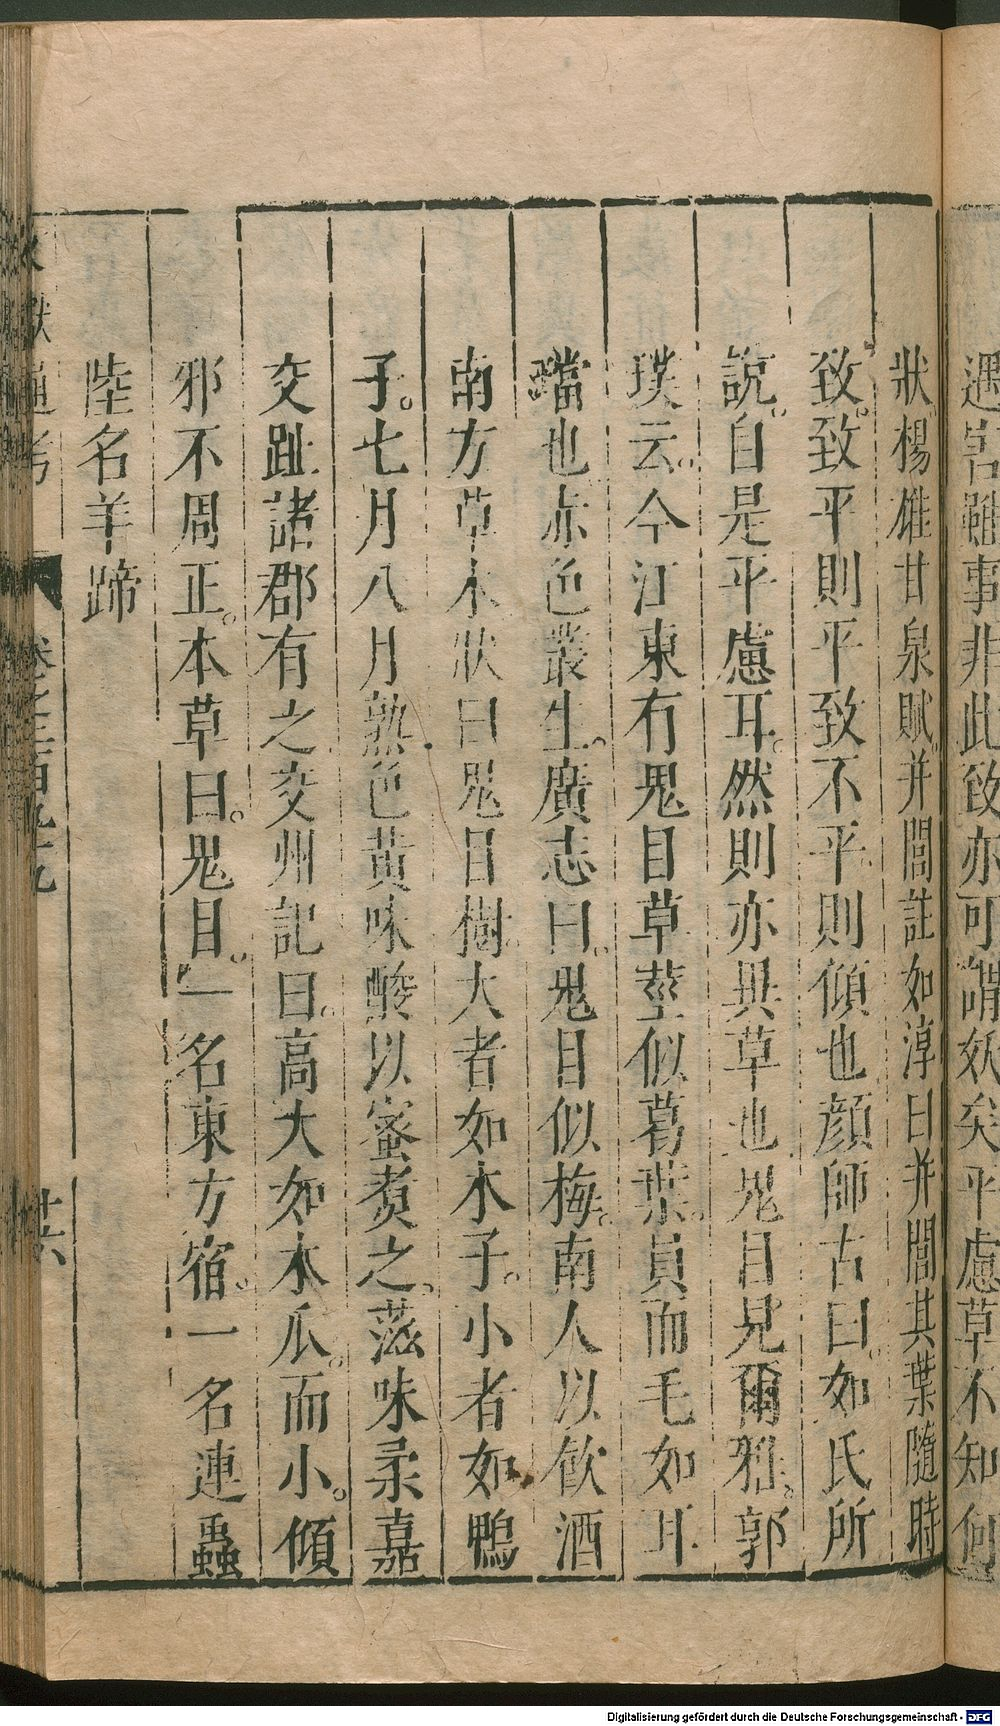 遇害雖事非此致亦可謂妖矣平慮草不知何
狀。楊雄甘泉賦。并閭註如淳曰并閭其葉隨時
致。致平則平致不平。則傾也顏師古曰。如氏所
說。自是平慮耳。然則亦異草也鬼目見爾雅。郭
璞云。今江東有鬼目草莖似葛葉。員而毛如耳
璫也赤色叢生。廣志曰。鬼目似梅。南人以飲酒
南方草木狀曰鬼目樹。大者如木子。小者如鴨
子。七月八月熟色黃味酸以蜜煑之。滋味柔嘉
交趾諸郡有之交州記曰。高大如木瓜。而小。傾
邪不周正。本草曰。鬼目。一名東方宿。一名連蟲
陸名羊蹄
文獻通考 卷之三百九十九 廿六
Digitalisierung gefördert durch die Deutsche Forschungsgemeinschaft - DFG